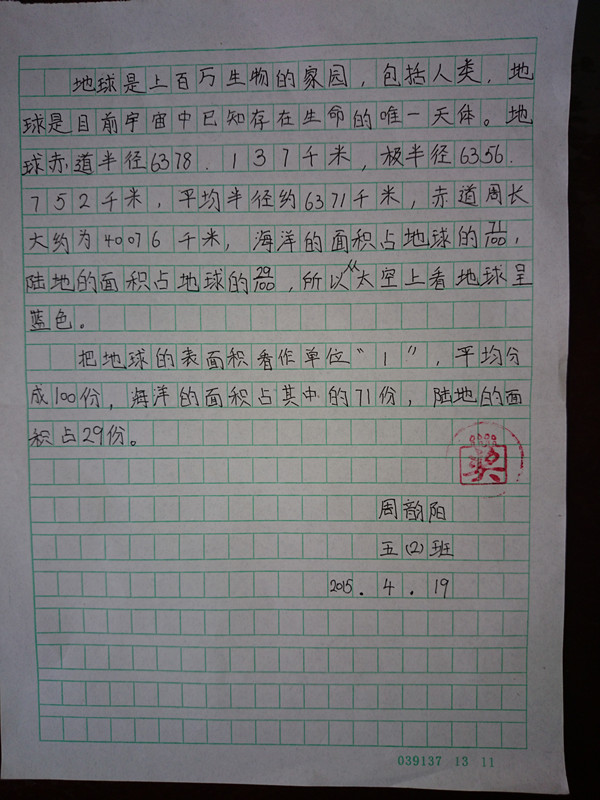 地球是上百万生物的家园，包括人类，地
球是目前宇宙中已知存在生命的唯一天体。地
球赤道半径6378.137千米，极半径6356.
752千米，平均半径约6371千米，赤道周长
大约为40076千米，海洋的面积占地球的71/100，
陆地的面积占地球的29/100，所以“太空上看地球呈
蓝色。
把地球的表面积看作单位“1”，平均分
成100份，海洋的面积占其中的71份，陆地的面
积占29份。
奖
周韵阳
五(2)班
2015.4.19
039137 13 11